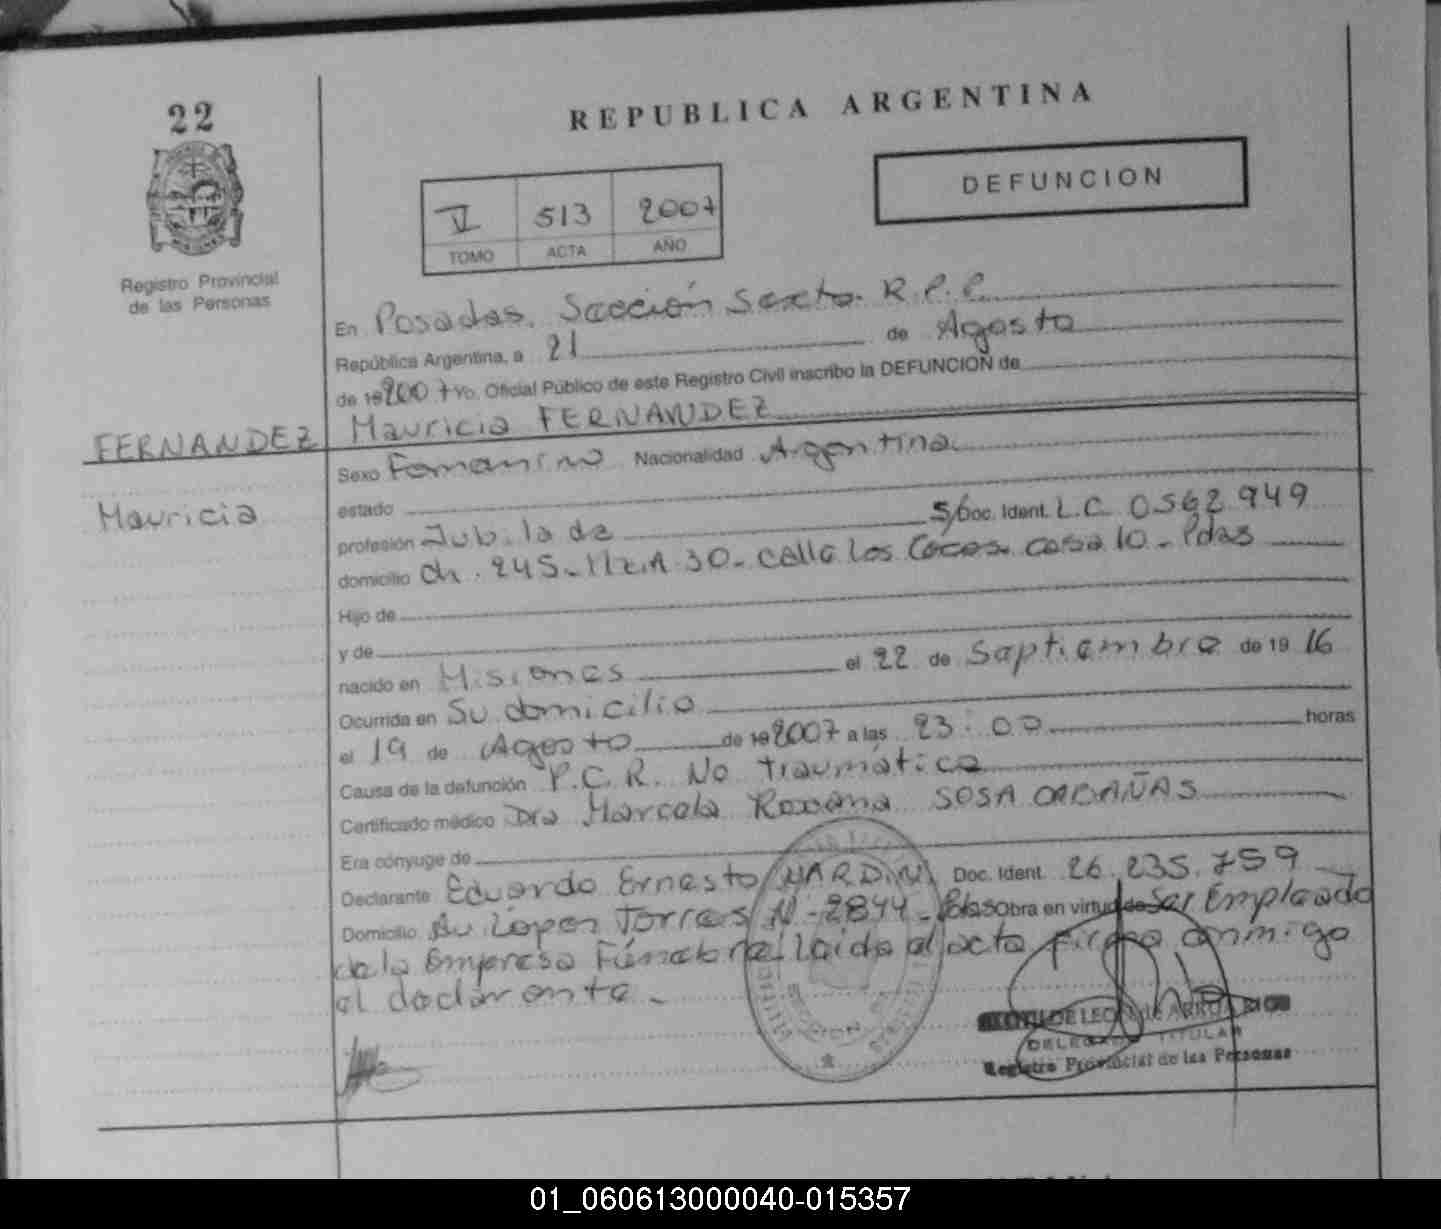 22
REPUBLICA ARGENTINA
DEFUNCION
V 513 2007
TOMO ACTA AÑO
Registro Provincial
de las Personas
En Posadas. Sección Sexta. R.P.P.
República Argentina, a 21 de Agosto
de 192007 Yo. Oficial Público de este Registro Civil inscribo la DEFUNCION de
FERNANDEZ Mauricia FERNANDEZ
Sexo Femenino Nacionalidad Argentina
Mauricia
estado
profesión Jubilada S/Doc. Ident. L.C. 0562.949
domicilio Ch. 245_Mz.A 30_calle los Cocos. casa 10_Pdas
Hijo de
y de
nacido en Misiones el 22 de Septiembre de 19 16
Ocurrida en Su domicilio
el 19 de Agosto de 192007 a las 23:00 horas
Causa de la defunción P.C.R. No traumática
Certificado médico Dra Marcela Roxana SOSA CABAÑAS
Era cónyuge de
Declarante Eduardo Ernesto NARDIN Doc. Ident. 26.235.759
Domicilio Av. López Torres N-2844_Pdas Obra en virtud de Ser Empleado
de la Empresa Fúnebre. Leida el acta firma conmigo
el declarante_
DE LEO
DELEGADO TITULAR
Registro Provincial de las Personas
01_060613000040-015357